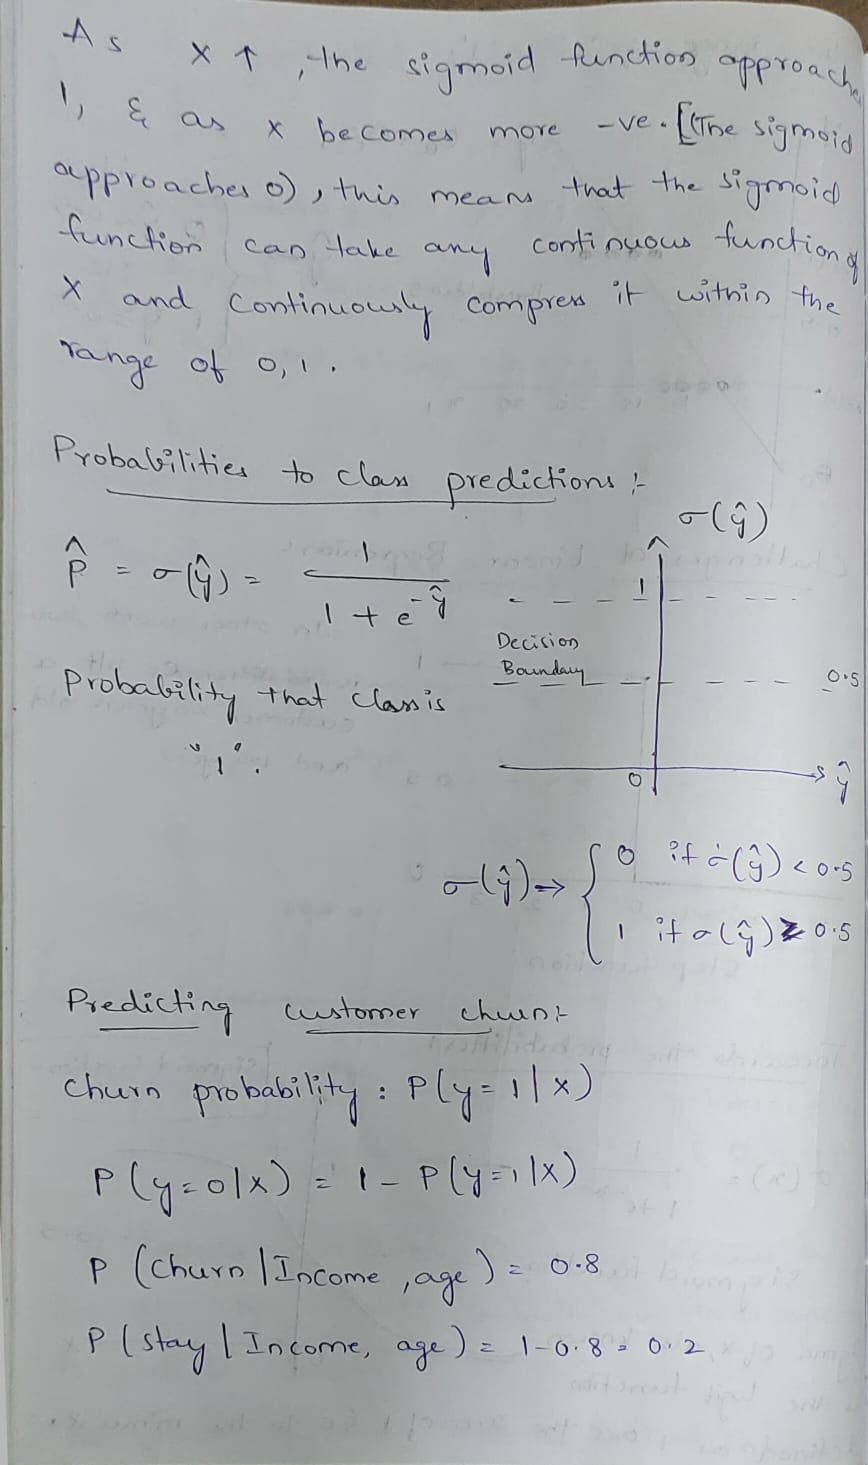 As x ↑, the sigmoid function approaches
1, & as x becomes more -ve. [(The sigmoid
approaches 0), this means that the sigmoid
function can take any continuous function of
X and continuously compress it within the
range of 0,1.
Probabilities to class predictions :-
σ(ŷ)
p̂ = σ(ŷ) = 1 / (1 + e^-ŷ)
1
Decision
Boundary
0.5
Probability that class is
"1".
0
ŷ
σ(ŷ) → { 0 if σ(ŷ) < 0.5
1 if σ(ŷ) ≥ 0.5
Predicting customer churn:-
Churn probability : P(y=1|x)
P(y=0|x) = 1 - P(y=1|x)
P (Churn | Income, age) = 0.8
P (stay | Income, age) = 1-0.8 = 0.2